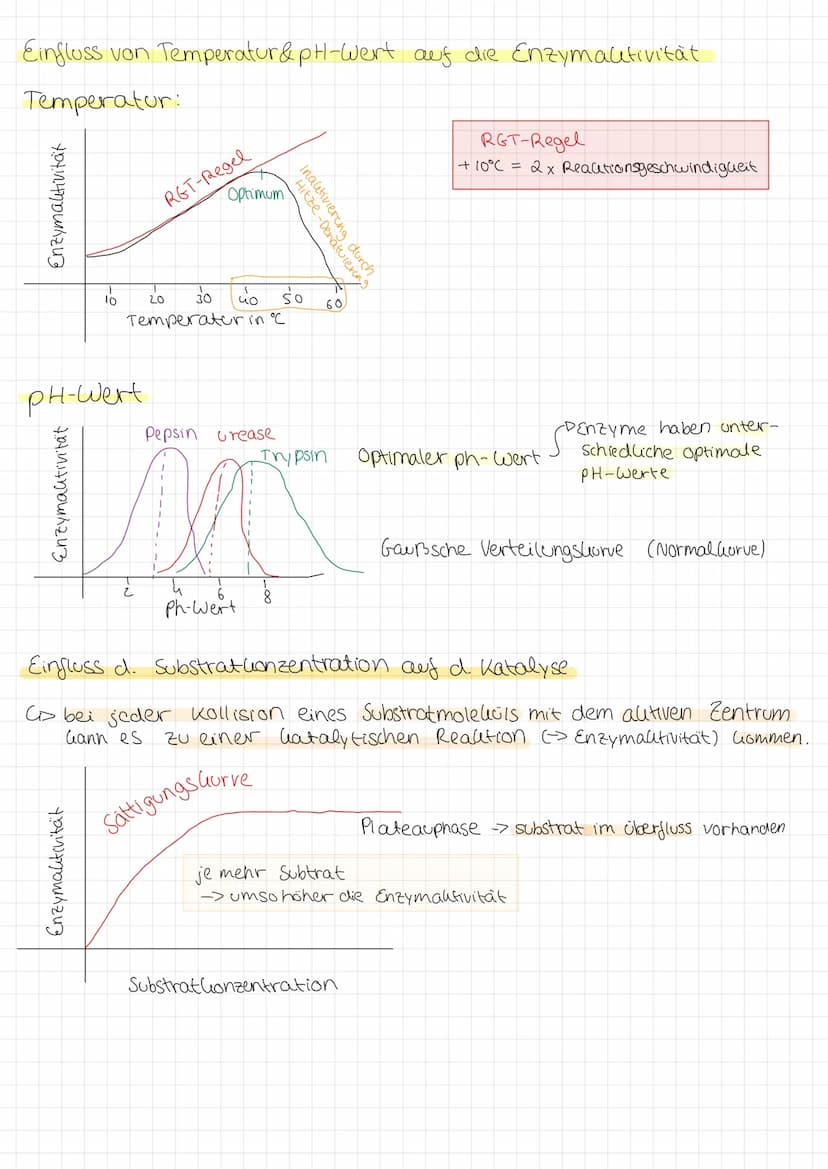 Einfluss von Temperatur & pH-Wert auf die Enzymaktivität
Temperatur:
Enzymaktivität
RGT-Regel
Optimum
Inaktivierung durch
Hitze-Denaturierung
10 20 30 40 50 60
Temperatur in °C
RGT-Regel
+10°C = 2x Reaktionsgeschwindigkeit
pH-Wert
Enzymaktivität
Pepsin Urease
Trypsin
2 4 6 8
Ph-Wert
Optimaler ph-Wert
Enzyme haben unter-
schiedliche optimale
pH-Werte
Gaußsche Verteilungskurve (Normalkurve)
Einfluss d. Substratkonzentration auf d. Katalyse
↳ bei jeder Kollision eines Substratmoleküls mit dem aktiven Zentrum
kann es zu einer katalytischen Reaktion (-> Enzymaktivität) kommen.
Enzymaktivität
Sättigungskurve
Plateauphase -> substrat im Überfluss vorhanden
je mehr Subtrat
-> umso höher die Enzymaktivität
Substratkonzentration